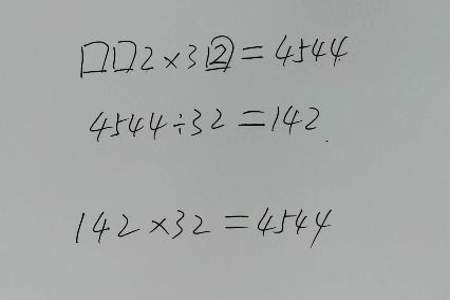 □□2×3②=4544
4544÷32=142.
142×32=4544